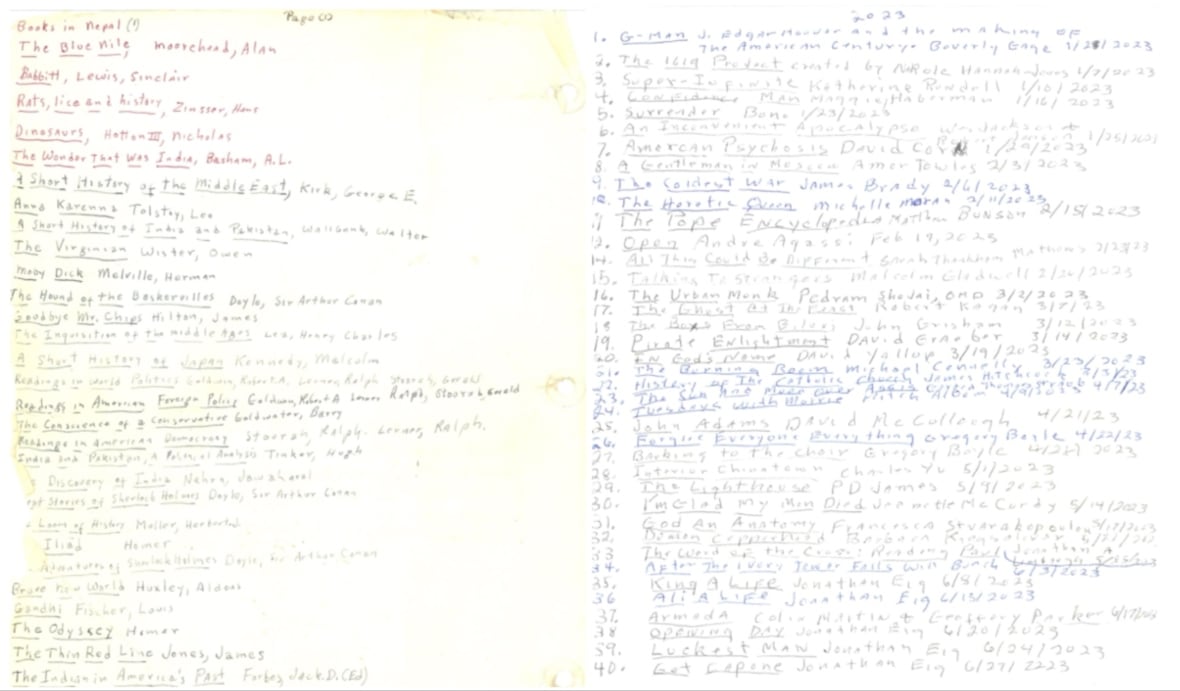 Page (1)
Books in Nepal (1)
The Blue Nile, Moorehead, Alan
Babbitt, Lewis, Sinclair
Rats, lice and history, Zinsser, Hans
Dinosaurs, Hotton III, Nicholas
The Wonder That Was India, Basham, A.L.
A Short History of the Middle East, Kirk, George E.
Anna Karenna Tolstoy, Leo
A Short History of India and Pakistan, Wallbank, Walter
The Virginian Wister, Owen
Moby Dick Melville, Herman
The Hound of the Baskervilles Doyle, Sir Arthur Conan
Goodbye Mr. Chips Hilton, James
The Inquisition of the middle Ages Lea, Henry Charles
A Short History of Japan Kennedy, Malcolm
Readings in World Politics Goldwin, Robert A. Lerner, Ralph Stourzh, Gerald
Readings in American Foreign Policy Goldwin, Robert A Lerner Ralph, Stourzh, Gerald
The Conscience of a Conservative Goldwater, Barry
Readings in American Democracy Stourzh, Ralph. Lerner, Ralph.
India and Pakistan, A Political Analysis Tinker, Hugh
Discovery of India Nehru, Jawaharal
Stories of Sherlock Holmes Doyle, Sir Arthur Conan
Loom of History Muller, Herbert
Iliad Homer
Adventures of Sherlock Holmes Doyle, Sir Arthur Conan
Brave new World Huxley, Aldous
Gandhi Fischer, Louis
The Odyssey Homer
The Thin Red Line Jones, James
The Indian in America's Past Forbes, Jack D. (Ed)
2023
1. G-Man J. Edgar Hoover and the making of
The American Century Beverly Gage 1/2/2023
2. The 1619 Project created by Nikole Hannah-Jones 1/7/2023
3. Super-Infinite Katherine Rundell 1/10/2023
4. Confidence Man Maggie Haberman 1/16/2023
5. Surrender Bono 1/23/2023
6. An Inconvenient Apocalypse Wes Jackson + Jensen 1/25/2023
7. American Psychosis David Corn 1/29/2023
8. A Gentleman in Moscow Amor Towles 2/3/2023
9. The Coldest War James Brady 2/6/2023
10. The Heretic Queen Michelle Moran 2/11/2023
11 The Pope Encyclopedia Matthew Bunson 2/15/2023
12. Open Andre Agassi Feb 19, 2023
14. All This Could Be Different Sarah Thankam Mathews 2/23/23
15. Talking To Strangers Malcolm Gladwell 2/26/2023
16. The Urban Monk Pedram Shojai, OMD 3/2/2023
17. The Ghost At The Feast Robert Kagan 3/7/23
18 The Boys From Biloxi John Grisham 3/12/2023
19. Pirate Enlightment David Graeber 3/14/2023
20. In Gods Name David Yallop 3/19/2023
21. The Burning Room Michael Connelly 3/23/2023
22. History of The Catholic Church James Hitchcock
23. The Sun And Moon Over Assisi 4/7/23
24. Tuesdays With Morrie Mitch Albom 4/9/2023
25. John Adams David McCullough 4/21/23
26. Forgive Everyone Everything Gregory Boyle 4/22/23
27. Barking to The Choir Gregory Boyle 4/28/2023
28. Interior Chinatown Charles Yu 5/1/2023
29. The Lighthouse PD James 5/9/2023
30. I'm Glad My Mom Died Jennette McCurdy 5/14/2023
31. God An Anatomy Francesca Stavrakopoulou
32. Demon Copperhead Barbara Kingsolver
33 The Word of the Cross: Reading Paul Jonathan A.
34. After The Ivory Tower Falls Will Bunch 6/3/2023
35. King A Life Jonathan Eig 6/8/2023
36 Ali A Life Jonathan Eig 6/13/2023
37. Armada Colin Martin & Geoffrey Parker 6/17/2023
38 Opening Day Jonathan Eig 6/20/2023
39. Luckest Man Jonathan Eig 6/24/2023
40. Get Capone Jonathan Eig 6/27/2223